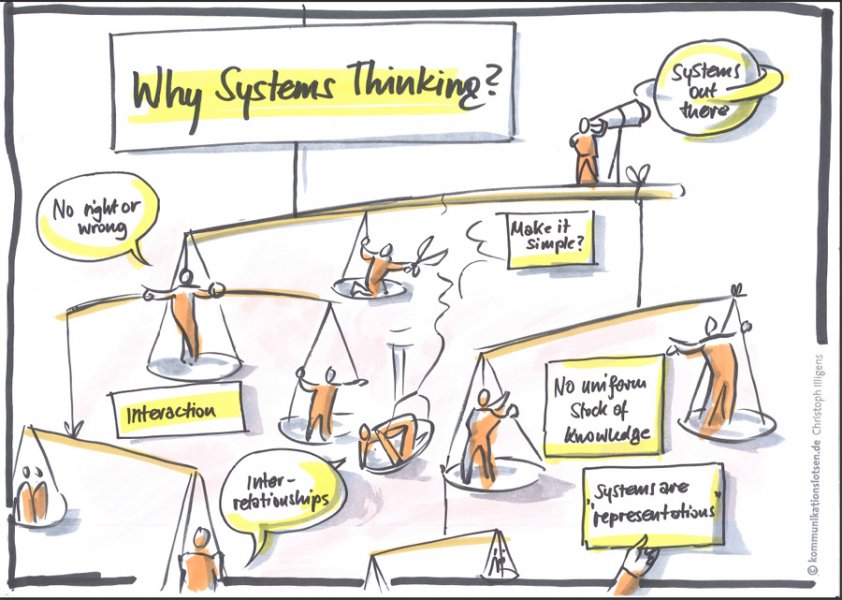 Why Systems Thinking?
Systems
out
there
No right or
wrong
Make it
simple?
Interaction
No uniform
Stock of
knowledge
Inter-
relationships
Systems are
"representations"
© kommunikationslotsen.de Christoph Illigens